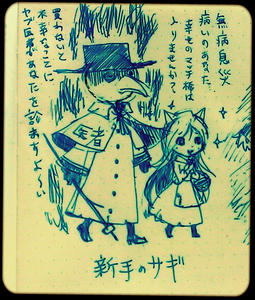 無病息災
病いのあなた…
幸せのマッチ棒は
いりませんか?
買わないと
不幸なことに
ヤブ医者があなたを診ますよ〜
医者
新手のサギ